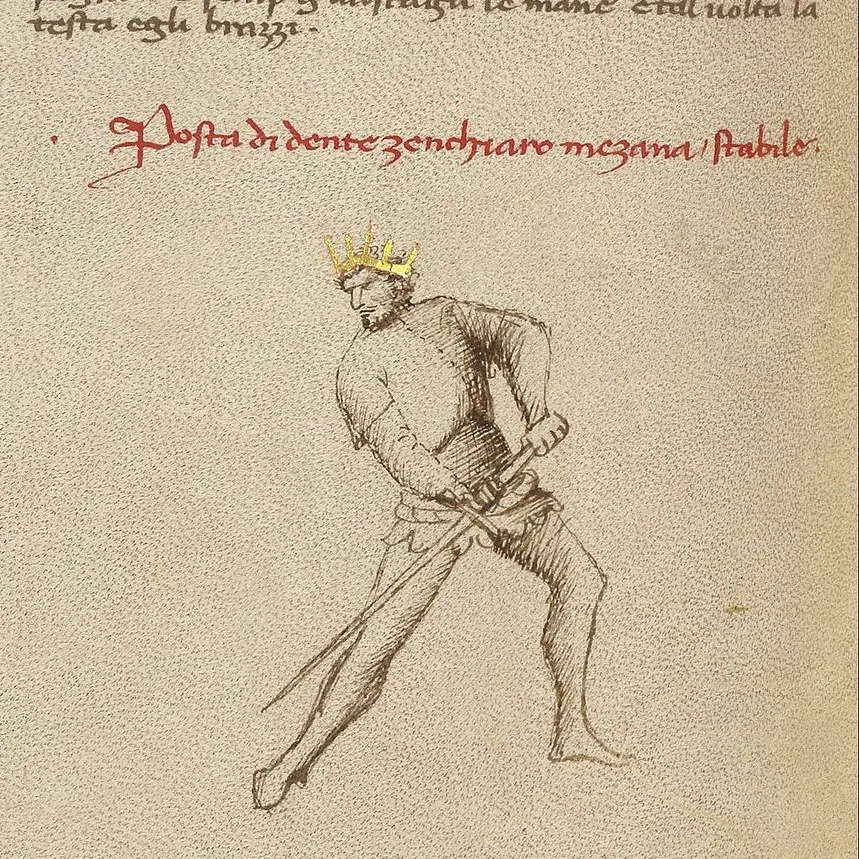 le mane Etal uolta la
testa egli brazzi.
Posta di dente zenchiaro mezana / stabile.